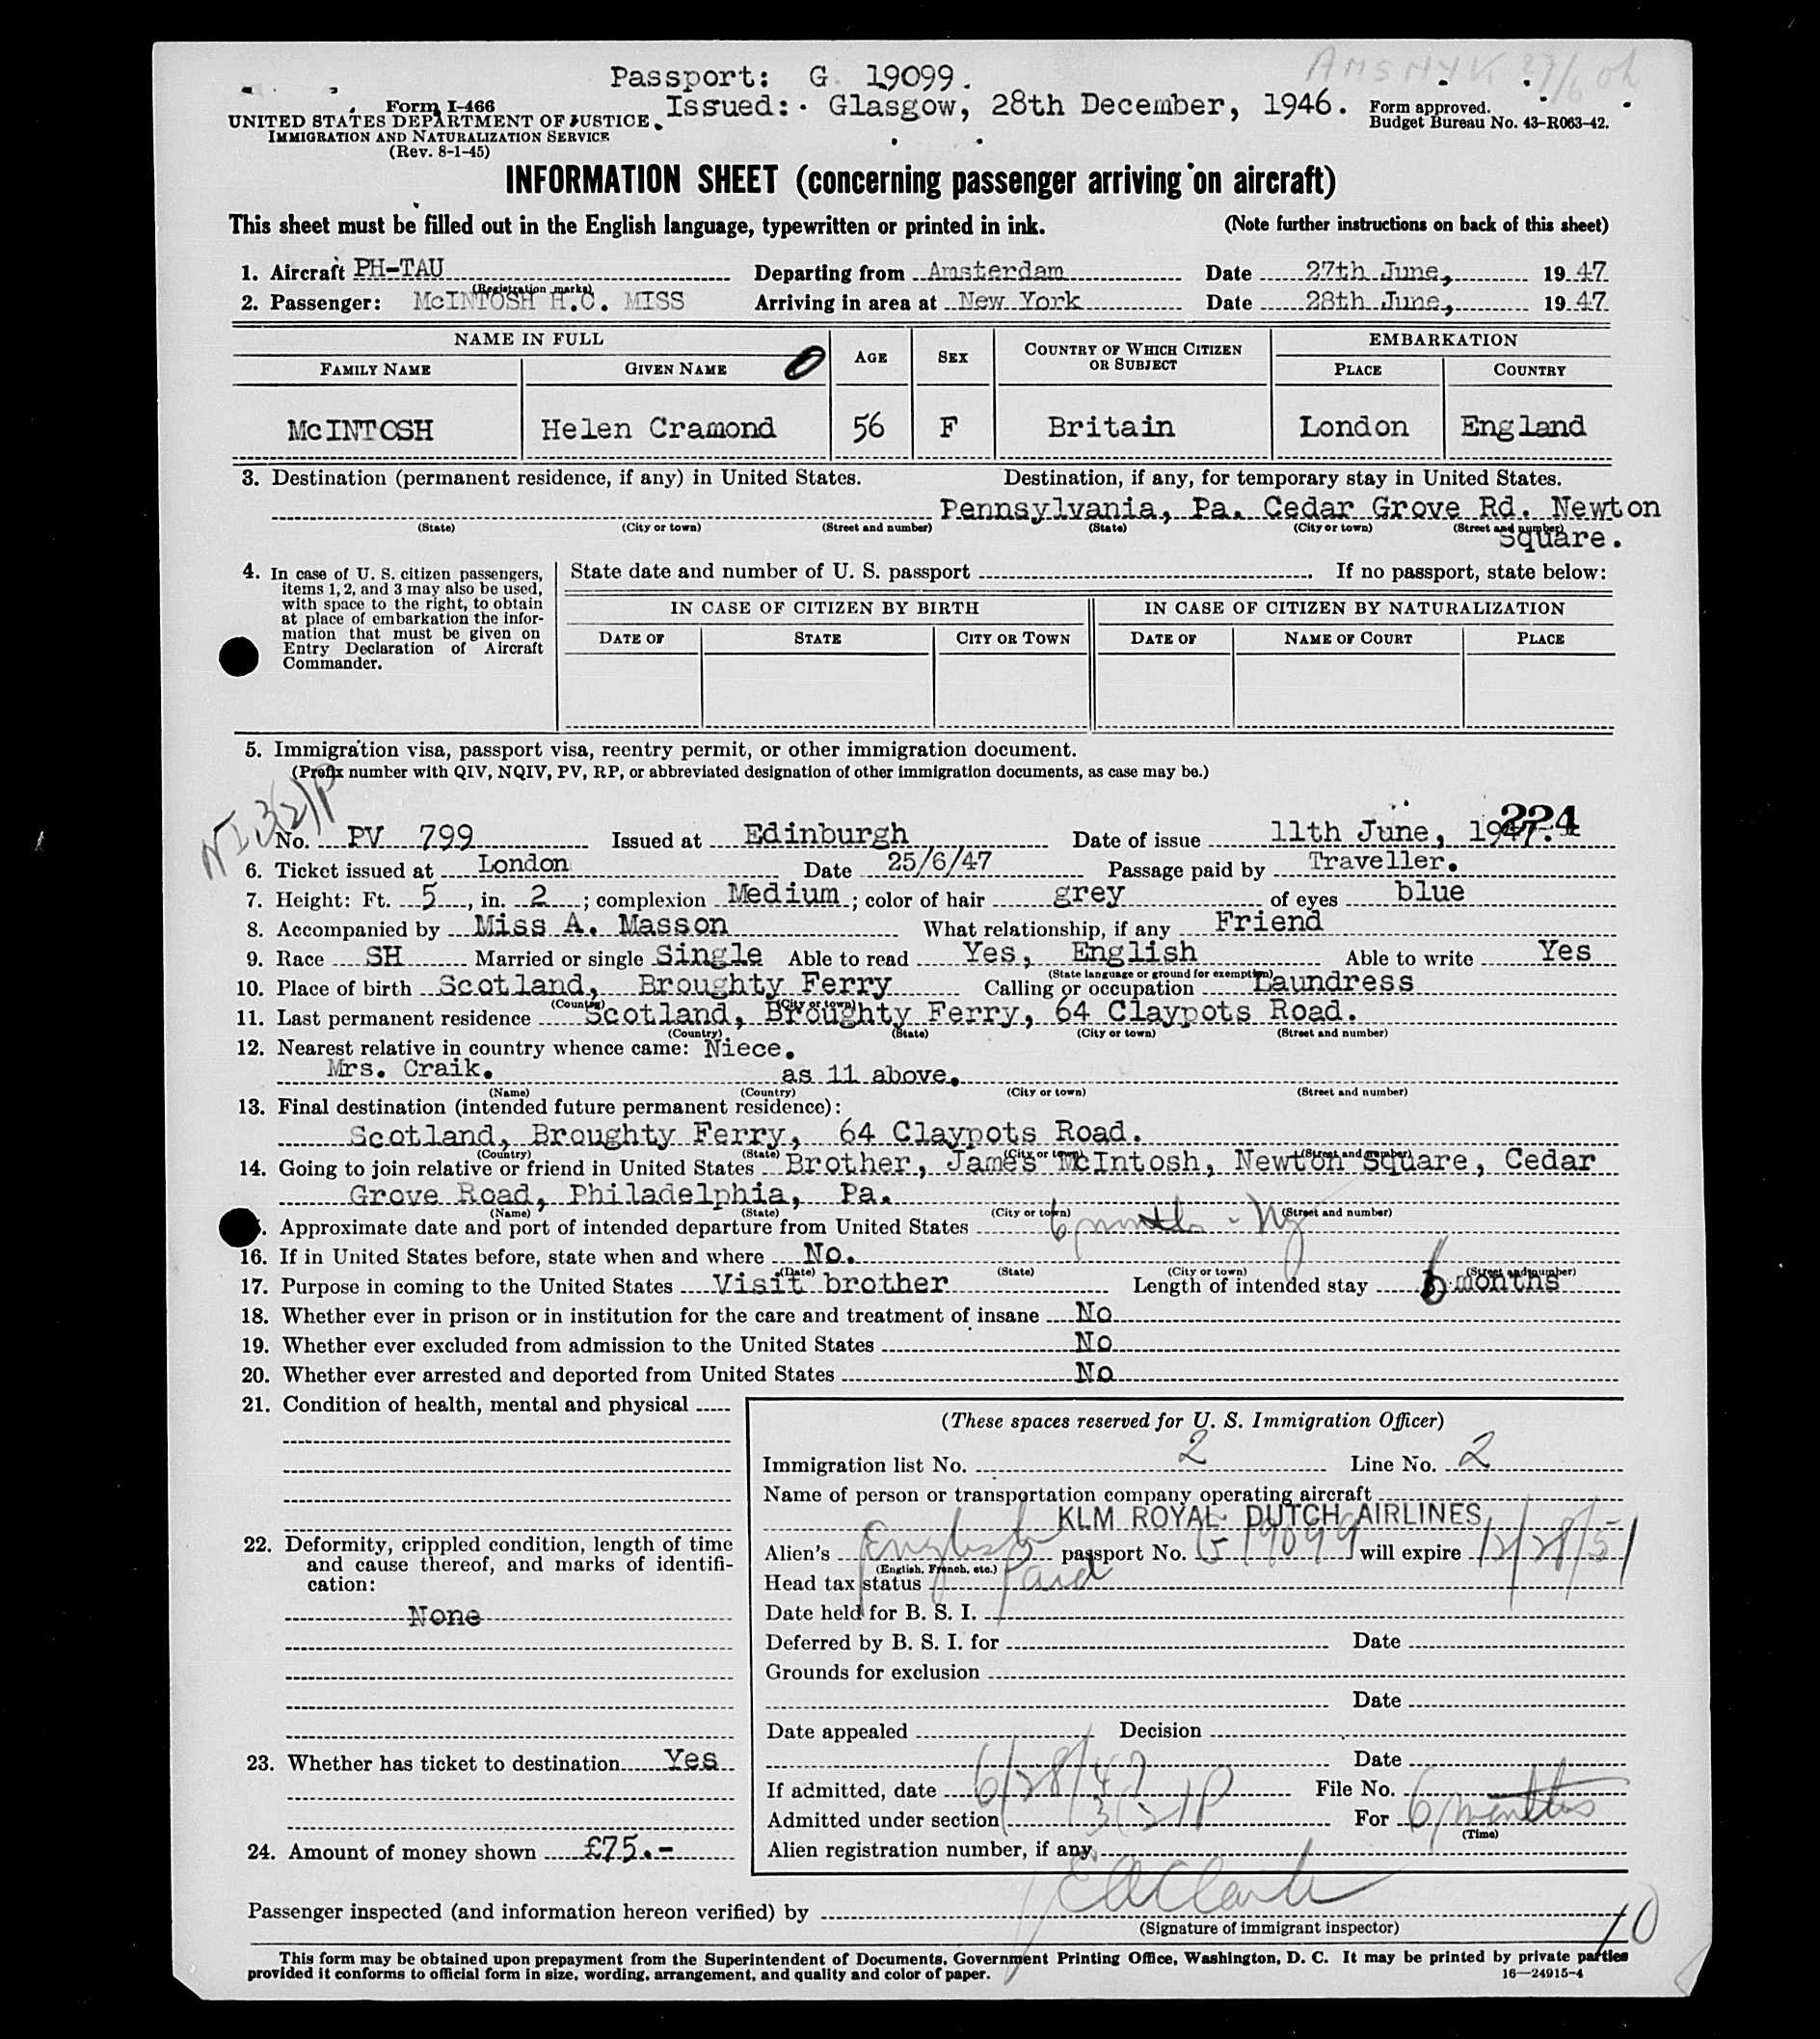 AMS NYK 27/6
Passport: G 19099.
Issued: Glasgow, 28th December, 1946.
Form I-466
UNITED STATES DEPARTMENT OF JUSTICE
IMMIGRATION AND NATURALIZATION SERVICE
(Rev. 8-1-45)
Form approved.
Budget Bureau No. 43-R063-42.
INFORMATION SHEET (concerning passenger arriving on aircraft)
This sheet must be filled out in the English language, typewritten or printed in ink. (Note further instructions on back of this sheet)
1. Aircraft PH-TAU Departing from Amsterdam Date 27th June, 19 47
(Registration marks)
2. Passenger: McINTOSH H.C. MISS Arriving in area at New York Date 28th June, 19 47
NAME IN FULL AGE SEX COUNTRY OF WHICH CITIZEN OR SUBJECT EMBARKATION
FAMILY NAME GIVEN NAME PLACE COUNTRY
McINTOSH Helen Cramond 56 F Britain London England
3. Destination (permanent residence, if any) in United States. Destination, if any, for temporary stay in United States.
Pennsylvania, Pa. Cedar Grove Rd. Newton
(State) (City or town) (Street and number) (State) (City or town) (Street and number)
Square.
4. In case of U. S. citizen passengers, items 1, 2, and 3 may also be used, with space to the right, to obtain at place of embarkation the information that must be given on Entry Declaration of Aircraft Commander.
State date and number of U. S. passport . If no passport, state below:
IN CASE OF CITIZEN BY BIRTH IN CASE OF CITIZEN BY NATURALIZATION
DATE OF STATE CITY OR TOWN DATE OF NAME OF COURT PLACE
5. Immigration visa, passport visa, reentry permit, or other immigration document.
(Prefix number with QIV, NQIV, PV, RP, or abbreviated designation of other immigration documents, as case may be.)
NI 3(2)P
224
No. PV 799 Issued at Edinburgh Date of issue 11th June, 1947.
6. Ticket issued at London Date 25/6/47 Passage paid by Traveller.
7. Height: Ft. 5, in. 2; complexion Medium; color of hair grey of eyes blue
8. Accompanied by Miss A. Masson What relationship, if any Friend
9. Race SH Married or single Single Able to read Yes, English Able to write Yes
(State language or ground for exemption)
10. Place of birth Scotland, Broughty Ferry Calling or occupation Laundress
(Country) (City or town)
11. Last permanent residence Scotland, Broughty Ferry, 64 Claypots Road.
(Country) (State) (City or town) (Street and number)
12. Nearest relative in country whence came: Niece.
Mrs. Craik. as 11 above.
(Name) (Country) (City or town) (Street and number)
13. Final destination (intended future permanent residence):
Scotland, Broughty Ferry, 64 Claypots Road.
(Country) (State) (City or town) (Street and number)
14. Going to join relative or friend in United States Brother, James McIntosh, Newton Square, Cedar
Grove Road, Philadelphia, Pa.
(Name) (State) (City or town) (Street and number)
. Approximate date and port of intended departure from United States 6 months - NY
16. If in United States before, state when and where No.
(Date) (State) (City or town) (Street and number)
17. Purpose in coming to the United States Visit brother Length of intended stay 6 months
18. Whether ever in prison or in institution for the care and treatment of insane No
19. Whether ever excluded from admission to the United States No
20. Whether ever arrested and deported from United States No
21. Condition of health, mental and physical
22. Deformity, crippled condition, length of time and cause thereof, and marks of identification:
None
23. Whether has ticket to destination Yes
24. Amount of money shown £75.-
(These spaces reserved for U. S. Immigration Officer)
Immigration list No. 2 Line No. 2
Name of person or transportation company operating aircraft
KLM ROYAL DUTCH AIRLINES
Alien's English passport No. G 19099 will expire 12/28/51
(English, French, etc.)
Head tax status Paid
Date held for B. S. I.
Deferred by B. S. I. for Date
Grounds for exclusion
Date
Date appealed Decision
Date
If admitted, date 6/28/47 File No.
Admitted under section 3(2)P For 6 months
(Time)
Alien registration number, if any
Passenger inspected (and information hereon verified) by E A Clark
(Signature of immigrant inspector)
10
This form may be obtained upon prepayment from the Superintendent of Documents, Government Printing Office, Washington, D. C. It may be printed by private parties
provided it conforms to official form in size, wording, arrangement, and quality and color of paper. 16—24915-4